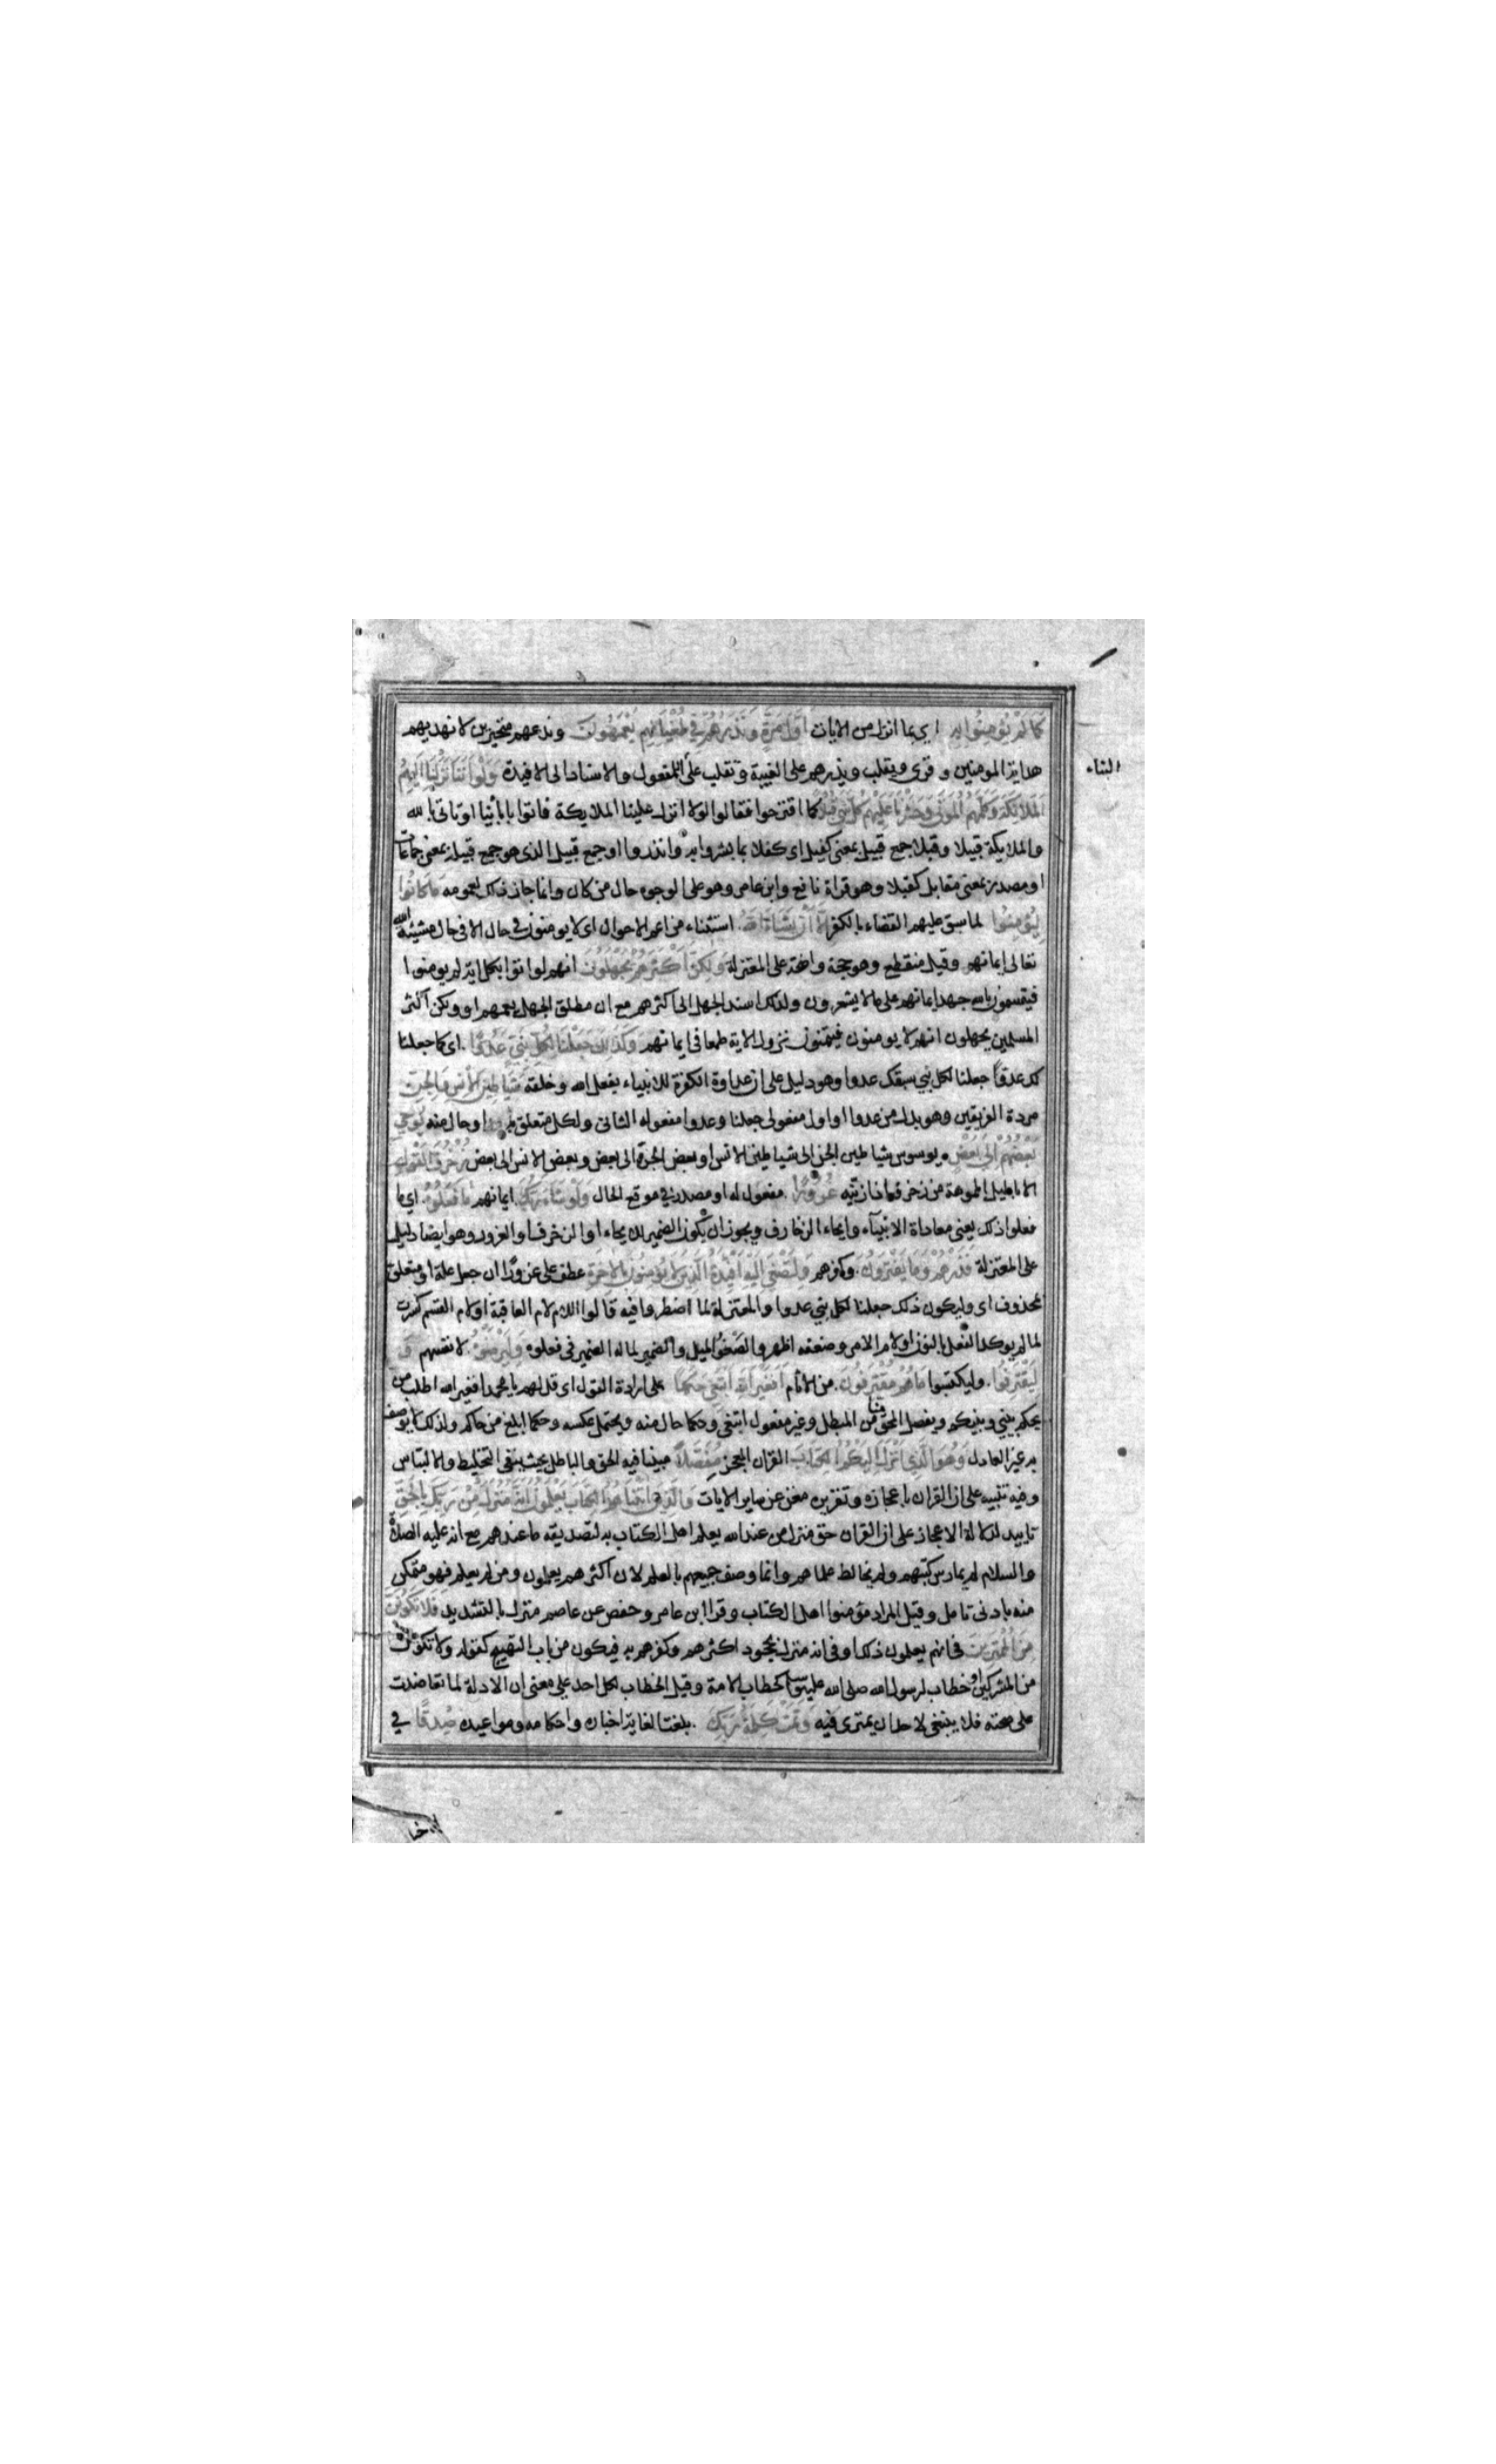 كَمَا لَمْ يُؤْمِنُوا بِهِ اى بما انزل من الايات اَوَّلَ مَرَّةٍ وَنَذَرُهُمْ فِي طُغْيَانِهِمْ يَعْمَهُونَ وندعهم متحيرين لا نهديهم
هداية المومنين وقرى ويقلب ويذرهم على الغيبة وتقلب على المفعول والاسناد الى الافيدة وَلَوْ اَنَّنَا نَزَّلْنَا اِلَيْهِمُ
الْمَلَائِكَةَ وَكَلَّمَهُمُ الْمَوْتَى وَحَشَرْنَا عَلَيْهِمْ كُلَّ شَيْءٍ قُبُلًا كما اقترحوا فقالوا لولا انزل علينا الملايكة فاتوا بابائنا او تاتى بالله
والملايكة قبيلا وقبلا جمع قبيل بمعنى كفيل اى كفلاء بما بشروا به وانذروا او جمع قبيل الذى هو جمع قبيلة بمعنى جماعات
او مصدر بمعنى مقابلة كقبلا وهو قراة نافع وابن عامر وهو على الوجوه حال من كل وانما جاز ذلك لعمومه مَا كَانُوا
لِيُؤْمِنُوا لما سبق عليهم القضاء بالكفر اِلَّا اَنْ يَشَاءَ اللهُ استثناء من اعم الاحوال اى لا يومنون فى حال الا فى حال مشيئة الله
تعالى ايمانهم وقيل منقطع وهو حجة واضحة على المعتزلة وَلَكِنَّ اَكْثَرَهُمْ يَجْهَلُونَ انهم لو اتوا بكل اية لم يومنوا
فيقسمون بالله جهد ايمانهم على ما لا يشعرون ولذلك اسند الجهل الى اكثرهم مع ان مطلق الجهل يعمهم او ولكن اكثر
المسلمين يجهلون انهم لا يومنون فيتمنون نزول الاية طمعا فى ايمانهم وَكَذَلِكَ جَعَلْنَا لِكُلِّ نَبِيٍّ عَدُوًّا اى كما جعلنا
لك عدوا جعلنا لكل نبى سبقك عدوا وهو دليل على ان عداوة الكفرة للانبياء بفعل الله وخلقه شَيَاطِينَ الْاِنْسِ وَالْجِنِّ
مردة الفريقين وهو بدل من عدوا او اول مفعولى جعلنا وعدوا مفعوله الثانى ولكل متعلق به او حال منه يُوحِي
بَعْضُهُمْ اِلَى بَعْضٍ يوسوس شياطين الجن الى شياطين الانس او بعض الجن الى بعض وبعض الانس الى بعض زُخْرُفَ الْقَوْلِ
الاباطيل المموهة من زخرفه اذا زينه غُرُورًا مفعول له او مصدر فى موقع الحال وَلَوْ شَاءَ رَبُّكَ ايمانهم مَا فَعَلُوهُ اى ما
فعلوا ذلك يعنى معاداة الانبياء وايحاء الزخارف ويجوز ان يكون الضمير للايحاء او الزخرف او الغرور وهو ايضا دليل
على المعتزلة فَذَرْهُمْ وَمَا يَفْتَرُونَ وكفرهم وَلِتَصْغَى اِلَيْهِ اَفْئِدَةُ الَّذِينَ لَا يُؤْمِنُونَ بِالْآخِرَةِ عطف على غرورا ان جعل علة او متعلق
بمحذوف اى وليكون ذلك جعلنا لكل نبى عدوا والمعتزلة لما اضطروا فيه قالوا اللام لام العاقبة او لام القسم كسرت
لما لم يوكد الفعل بالنون او لام الامر وضعفه اظهر والصغو الميل والضمير لما له الضمير فى فعلوه وَلِيَرْضَوْهُ لانفسهم وَ
لِيَقْتَرِفُوا وليكتسبوا مَا هُمْ مُقْتَرِفُونَ من الاثام اَفَغَيْرَ اللهِ اَبْتَغِي حَكَمًا على ارادة القول اى قل لهم يا محمد افغير الله اطلب من
يحكم بينى وبينكم ويفصل المحق منا من المبطل وغير مفعول ابتغى وحكما حال منه ويحتمل عكسه وحكما ابلغ من حاكم ولذلك لا يوصف
به غير العادل وَهُوَ الَّذِي اَنْزَلَ اِلَيْكُمُ الْكِتَابَ القران المعجز مُفَصَّلًا مبينا فيه الحق والباطل بحيث ينفى التخليط والالتباس
وفيه تنبيه على ان القران باعجازه وتقريره مغن عن ساير الايات وَالَّذِينَ آتَيْنَاهُمُ الْكِتَابَ يَعْلَمُونَ اَنَّهُ مُنَزَّلٌ مِنْ رَبِّكَ بِالْحَقِّ
تاييد لدلالة الاعجاز على ان القران حق منزل من عند الله يعلم اهل الكتاب به لتصديقه ما عندهم مع انه عليه الصلاة
والسلام لم يمارس كتبهم ولم يخالط علماهم وانما وصف جميعهم بالعلم لان اكثرهم يعلمون ومن لم يعلم فهو متمكن
منه بادنى تامل وقيل المراد مؤمنوا اهل الكتاب وقرا ابن عامر وحفص عن عاصم منزل بالتشديد فَلَا تَكُونَنَّ
مِنَ الْمُمْتَرِينَ فى انهم يعلمون ذلك او فى انه منزل بجحود اكثرهم وكفرهم به فيكون من باب التهييج كقوله ولا تكونن
من المشركين او خطاب لرسول الله صلى الله عليه وسلم كخطاب الامة وقيل الخطاب لكل احد على معنى ان الادلة لما تعاضدت
على صحته فلا ينبغى لاحد ان يمترى فيه وَتَمَّتْ كَلِمَةُ رَبِّكَ بلغت الغاية اخباره واحكامه ومواعيده صِدْقًا فى